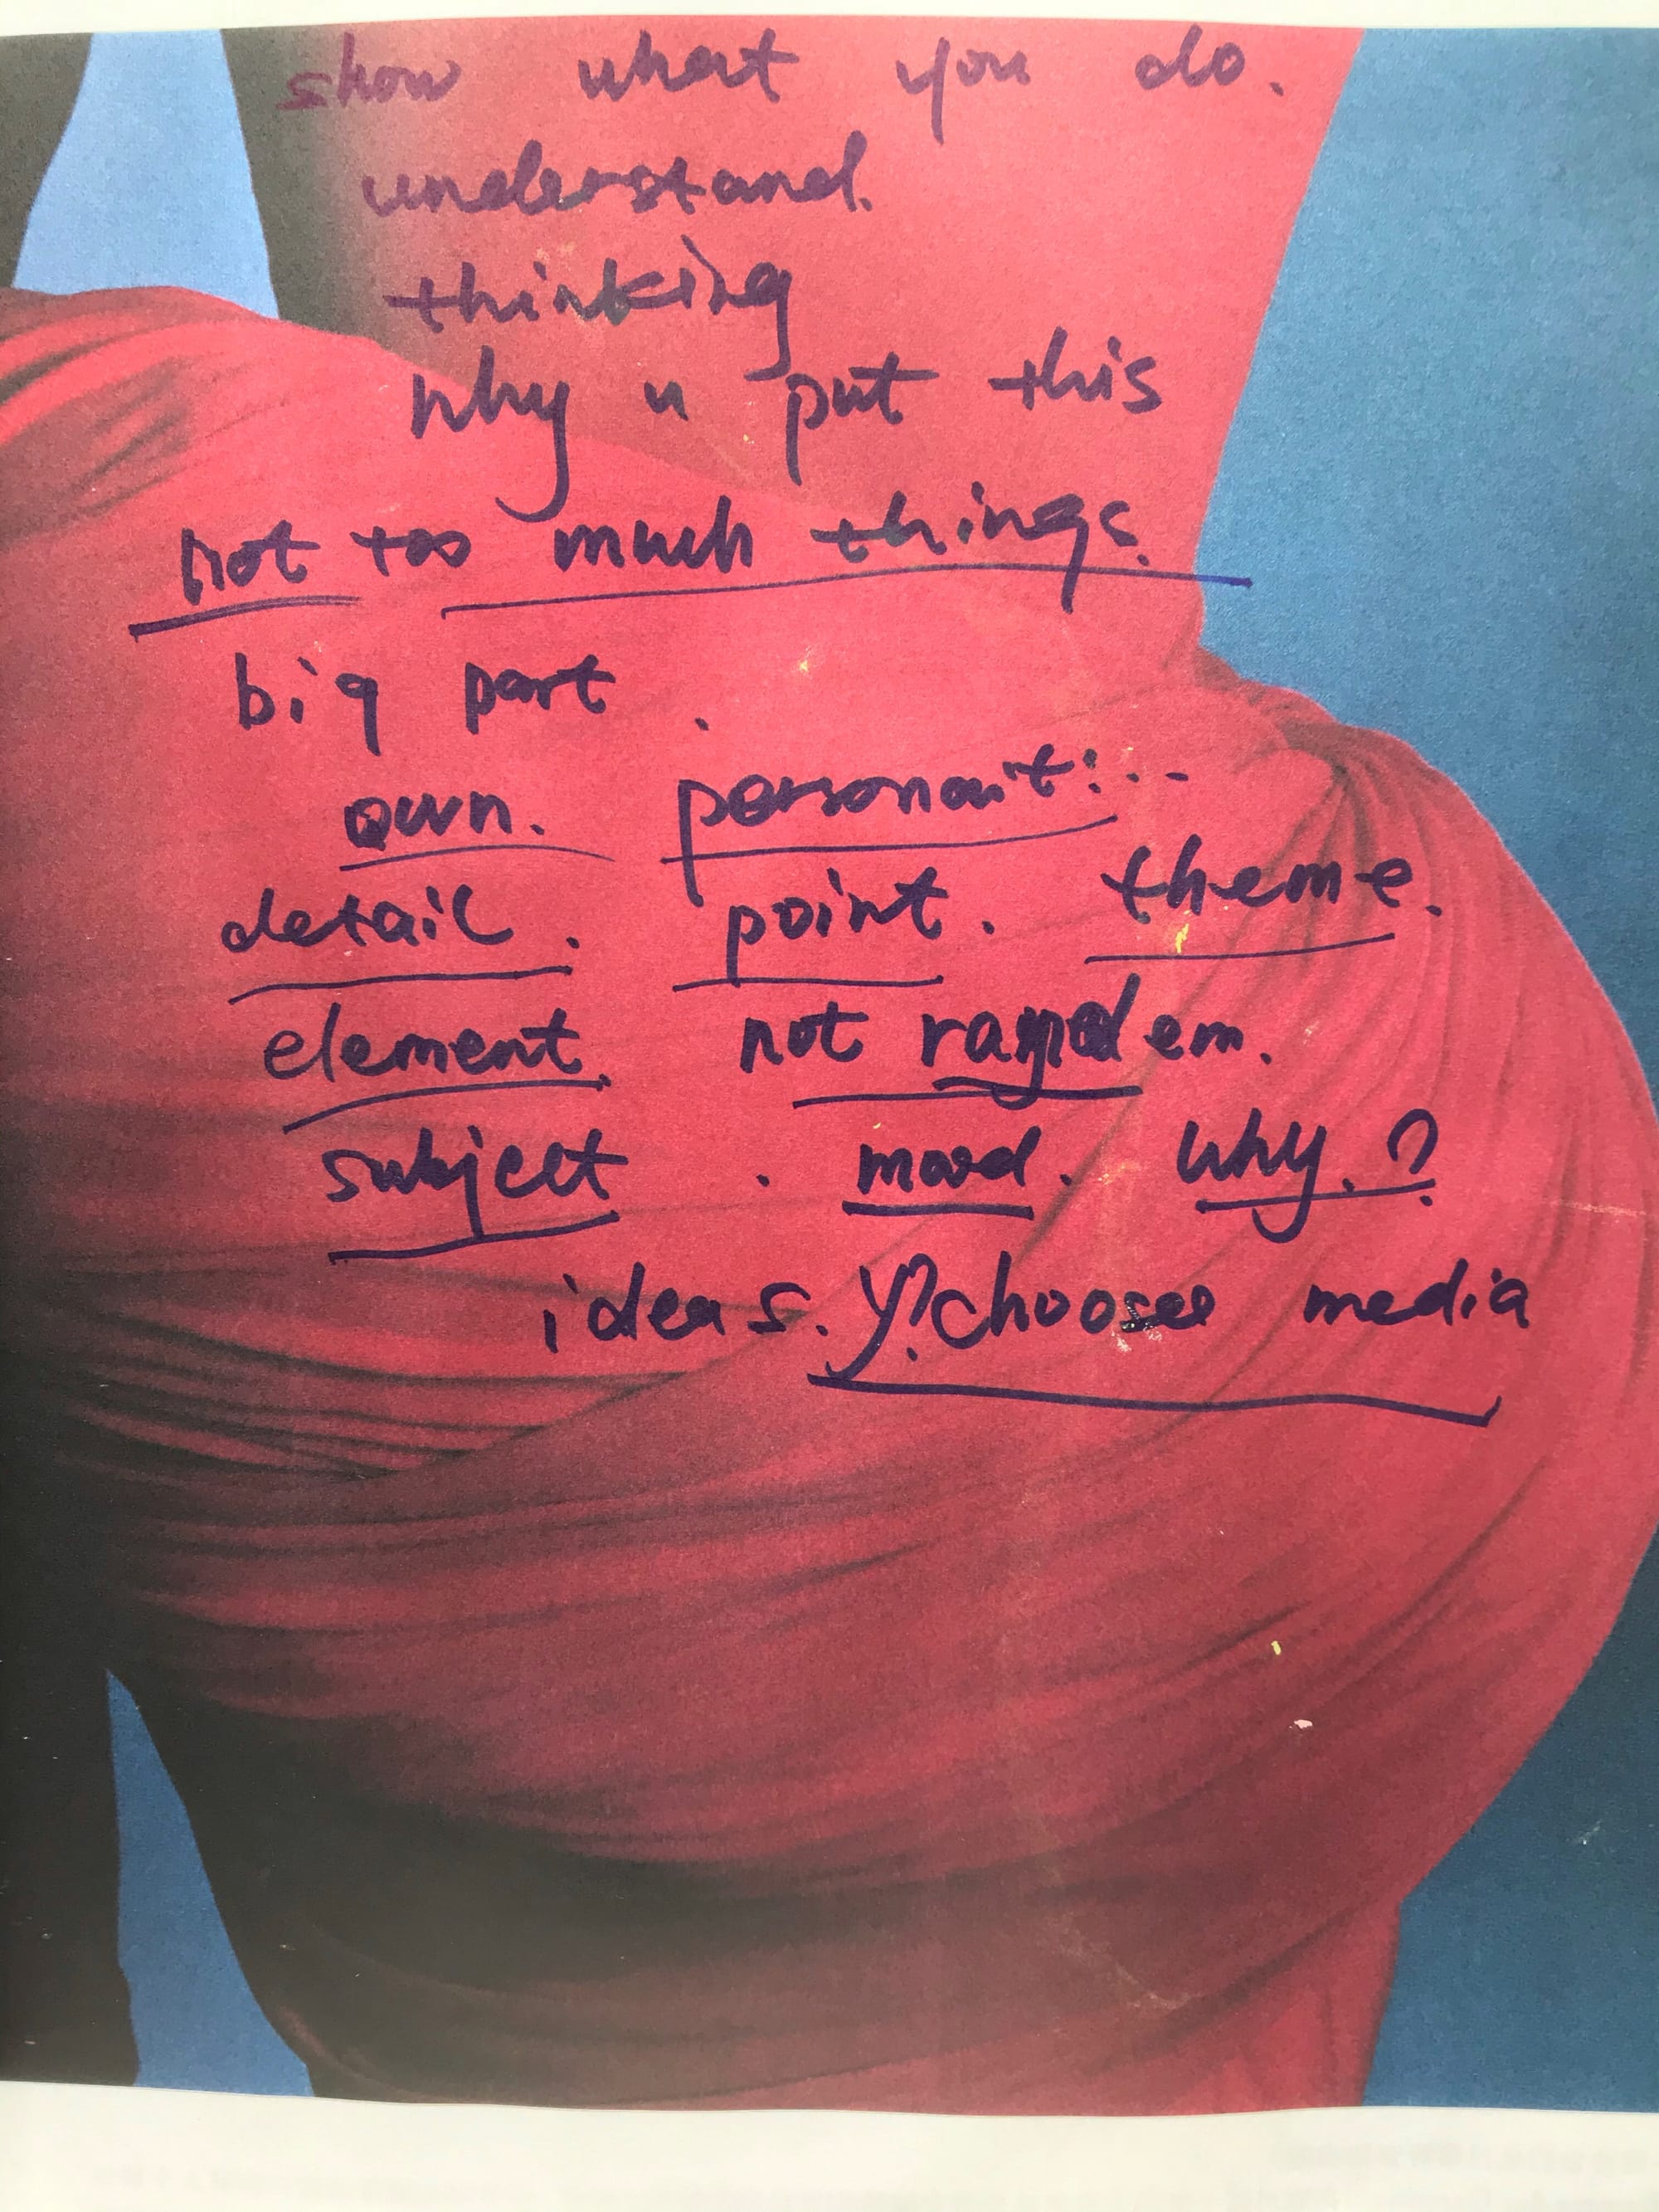 show what you do.
understand.
thinking
why u put this
not too much things.
big part.
own. personait:..
detail. point. theme.
element. not em.
subject. mood. why.?
ideas. y? choose media